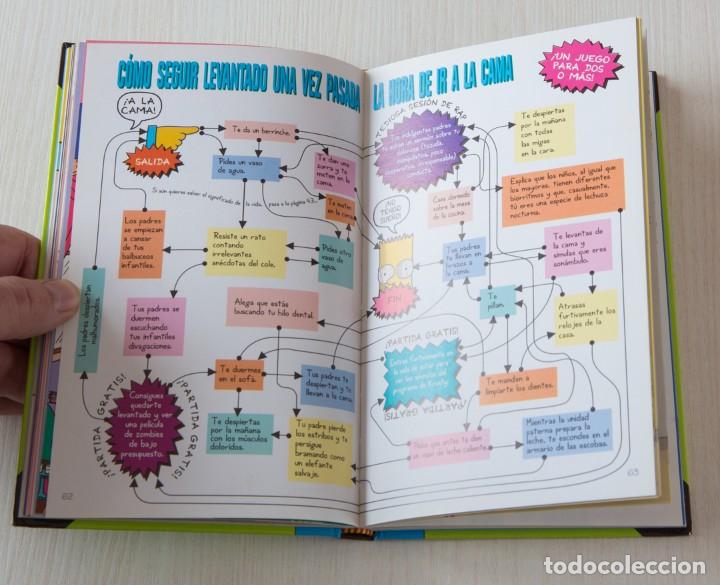 CÓMO SEGUIR LEVANTADO UNA VEZ PASADA
LA HORA DE IR A LA CAMA
¡UN JUEGO
PARA DOS
O MÁS!
¡A LA
CAMA!
SALIDA
Te da un berrinche.
Pides un vaso
de agua.
Te dan una
zurra y te
meten en la
cama.
Si aún quieres saber el significado de la vida, pasa a la página 43.
Te meten
en la cama.
Los padres
se empiezan
a cansar
de tus
balbuceos
infantiles.
Resiste un rato
contando
irrelevantes
anécdotas del cole.
Pides otro
vaso de
agua.
Los padres despiertan
malhumorados.
Tus padres se
duermen
escuchando
tus infantiles
divagaciones.
Alega que estás
buscando tu hilo dental.
¡PARTIDA GRATIS!
Consigues
quedarte
levantado y ver
una película
de zombies
de bajo
presupuesto.
¡PARTIDA GRATIS!
¡PARTIDA GRATIS!
Te duermes
en el sofá.
Tus padres te
despiertan y te
llevan a la cama.
Te despiertas
por la mañana
con los músculos
doloridos.
Tu padre pierde
los estribos y te
persigue
bramando como
un elefante
salvaje.
62
TEDIOSA SESIÓN DE RAP
Tus indulgentes padres
te echan un sermón sobre tu
dolorosa (tozuda,
manipulativa, poco
cooperativa, irresponsable)
conducta.
Te despiertas
por la mañana
con todas
las migas
en la cara.
Caes dormido
sobre la mesa
de la cocina.
Explica que los niños, al igual que
los mayores, tienen diferentes
biorritmos y que, casualmente,
tú eres una especie de lechuza
nocturna.
¡NO
TENGO
SUEÑO!
FIN
Tus padres
te llevan en
brazos a
la cama.
Te levantas de
la cama y
simulas que eres
sonámbulo.
Te
pillan.
Atrasas
furtivamente los
relojes de la
casa.
¡PARTIDA GRATIS!
Entras furtivamente en
la sala de estar para
ver los estúpidos del
programa de Krusty.
¡PARTIDA GRATIS!
Te mandan a
limpiarte los dientes.
Pides que antes te den
un vaso de leche caliente.
Mientras la unidad
paterna prepara la
leche, te escondes en el
armario de las escobas.
63
todocoleccion